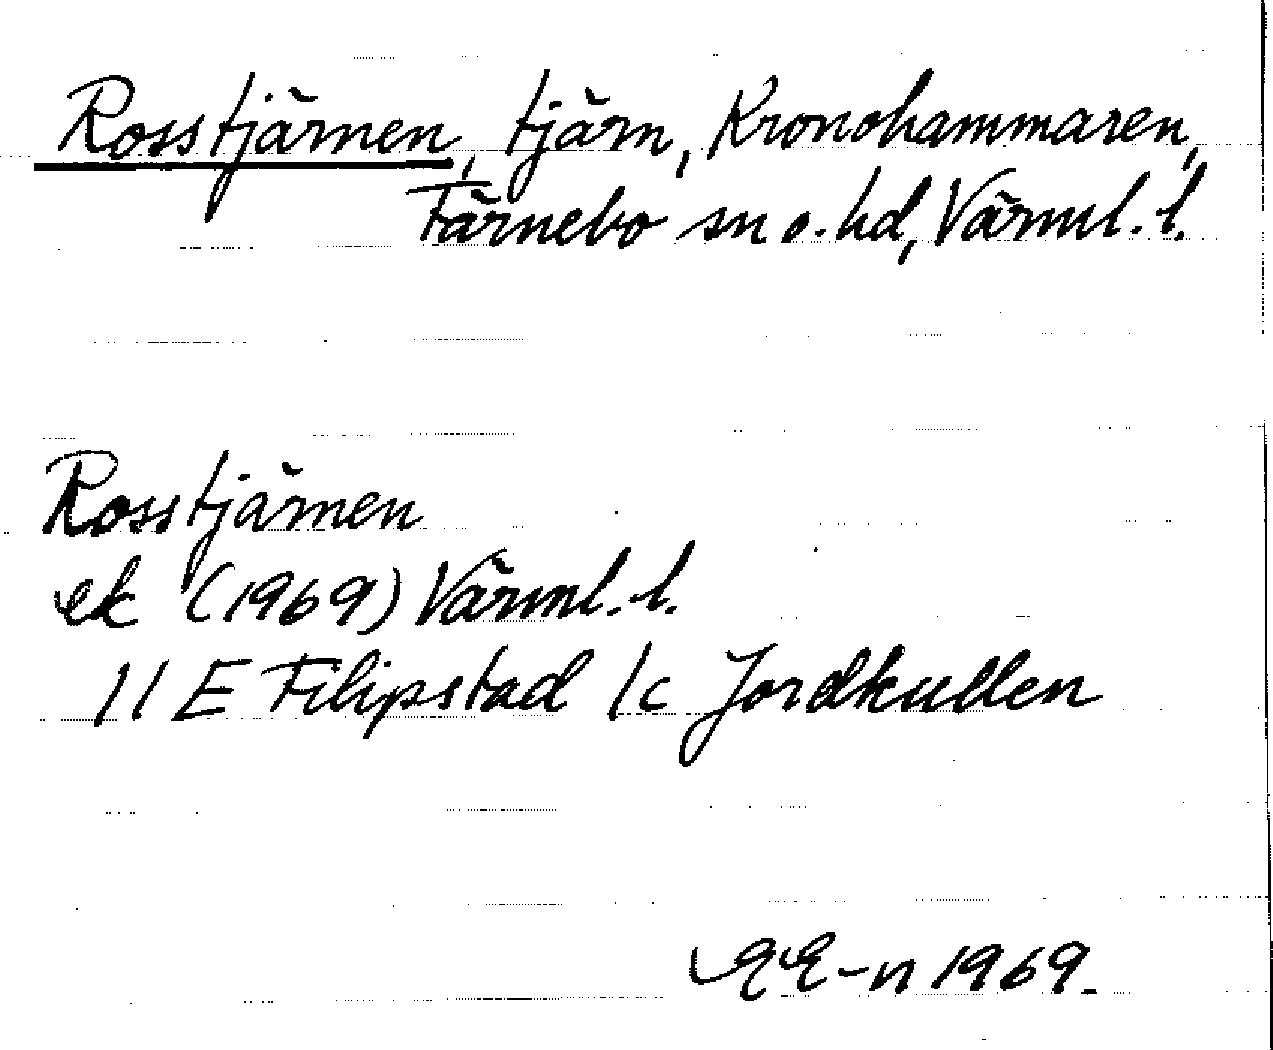 Rosstjärnen, tjärn, Kronohammaren,
Färnebo sn o. hd, Värml. l.
Rosstjärnen
ek (1969) Värml. l.
11 E Filipstad 1c Jordkullen
EE-n 1969.